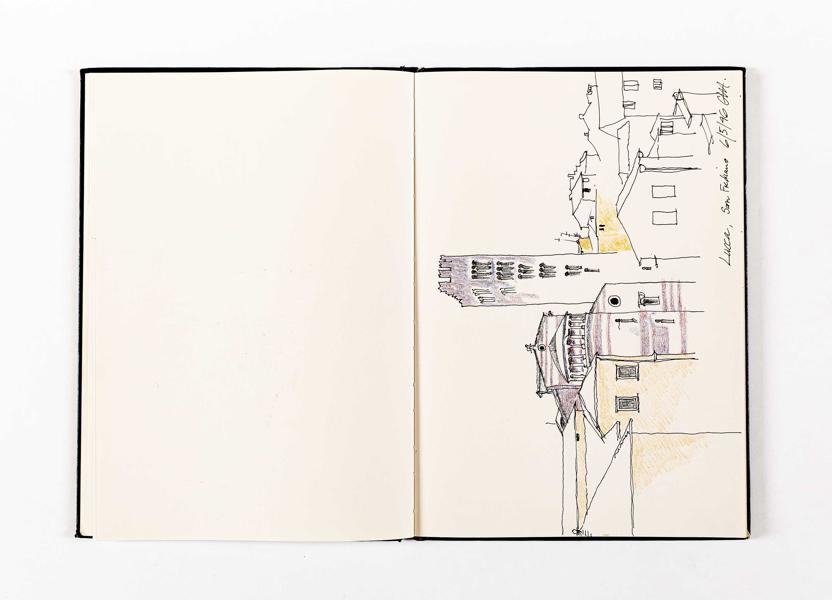 Lucca, San Frediano 6/5/96